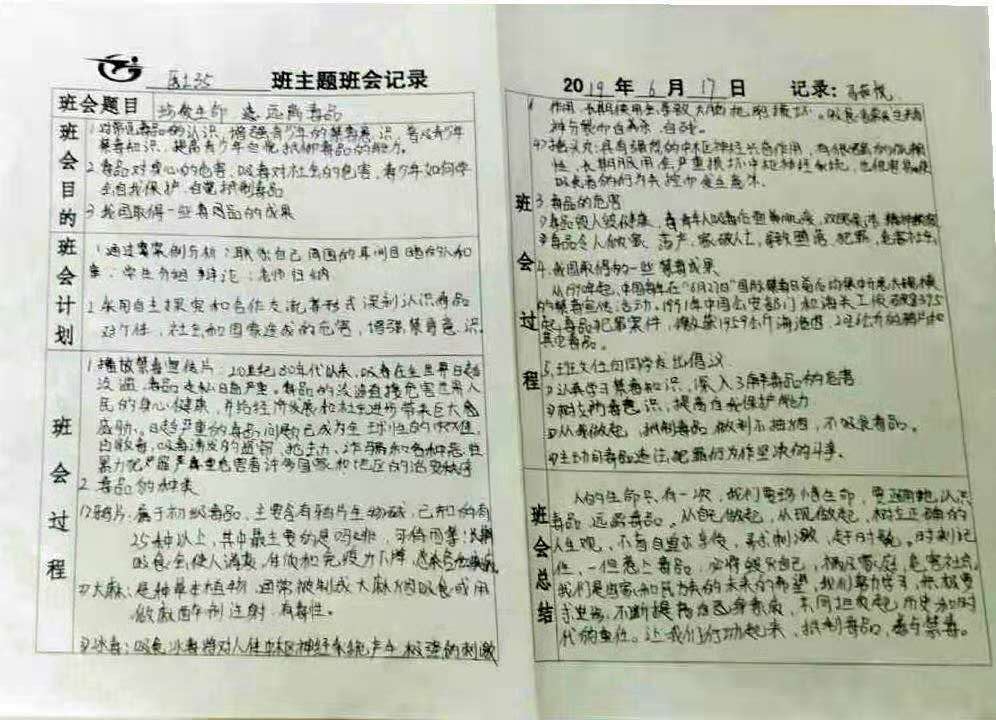 医135 班主题班会记录
班会题目 珍爱生命 远离毒品
班会目的
1 对常见毒品的认识,增强青少年的禁毒意识,普及青少年
禁毒知识,提高青少年自觉抵御毒品的能力。
2 毒品对身心的危害,吸毒对社会的危害,青少年如何学
会自我保护,自觉抵制毒品
3 我国取得一些毒品的成果
班会计划
1 通过案例分析;联系自己周围的耳闻目睹
学生介绍 辩论;老师归纳
2 采用自主探究和合作交流等形式深刻认识毒品
对个性,社会和国家造成的危害,增强禁毒意识.
班会过程
1 播放禁毒宣传片:20世纪80年代以来,吸毒在全世界日趋
泛滥,毒品走私日趋严重。毒品的泛滥直接危害世界人
民的身心健康,并给经济发展和社会进步带来巨大危
威胁。日趋严重的毒品问题已成为全球性的
吸毒诱发的盗窃、抢劫、诈骗和各种恶性
暴力犯罪严重危害着许多国家和地区的治安秩序
2 毒品的种类
(1)鸦片:属于初级毒品,主要含有鸦片生物碱,已知的有
25种以上,其中最主要的是吗啡,可待因等;长期
吸食会使人消瘦,体质和免疫力下降
(2)大麻:是种草本植物,通常被制成大麻烟吸食或用
做麻醉剂注射,有毒性。
(3)冰毒:吸食冰毒将对人体中枢神经系统产生极强的刺激
2019 年 6 月 17 日 记录:
作用,长期使用会导致大脑机能损坏。
精神分裂而自杀,自残。
具有强烈的中枢神经兴奋作用,有很强的依赖
性,长期服用会严重损坏中枢神经系统,也很容易使
吸食者的行为失控而发生意外.
班会过程
3 毒品的危害
毒品毁人毁健康,
毒品令人倾家、荡产,家破人亡,
4. 我国取得的一些禁毒成果
从1990起,中国每年在“6月27日”国际禁毒日前后均集中开大规模
的禁毒宣传活动,1991年中国公安部门和海关工
起毒品犯罪案件,缴获1959公斤海洛因,
其它毒品。
5. 班主任向同学发出倡议
认真学习禁毒知识,深入了解毒品的危害
树立防毒意识,提高自我保护能力
从我做起,抵制毒品,做到不抽烟,不吸食毒品。
主动同毒品违法犯罪行为作坚决的斗争.
班会总结
人的生命只有一次,我们要珍惜生命,要正确地认识
毒品 远离毒品。从自己做起,从现做起,树立正确的
人生观,不盲目追求享受,寻求刺激,赶时髦。时刻记
住,一但惹上毒品,必将毁灭自己,祸及家庭,危害社会。
我们是国家和民族的未来的希望,我们要努力学习,积极要
求进步,不断提高自己身素质,共同担负起历史和时
代的重任。让我们行动起来,抵制毒品,参与禁毒。